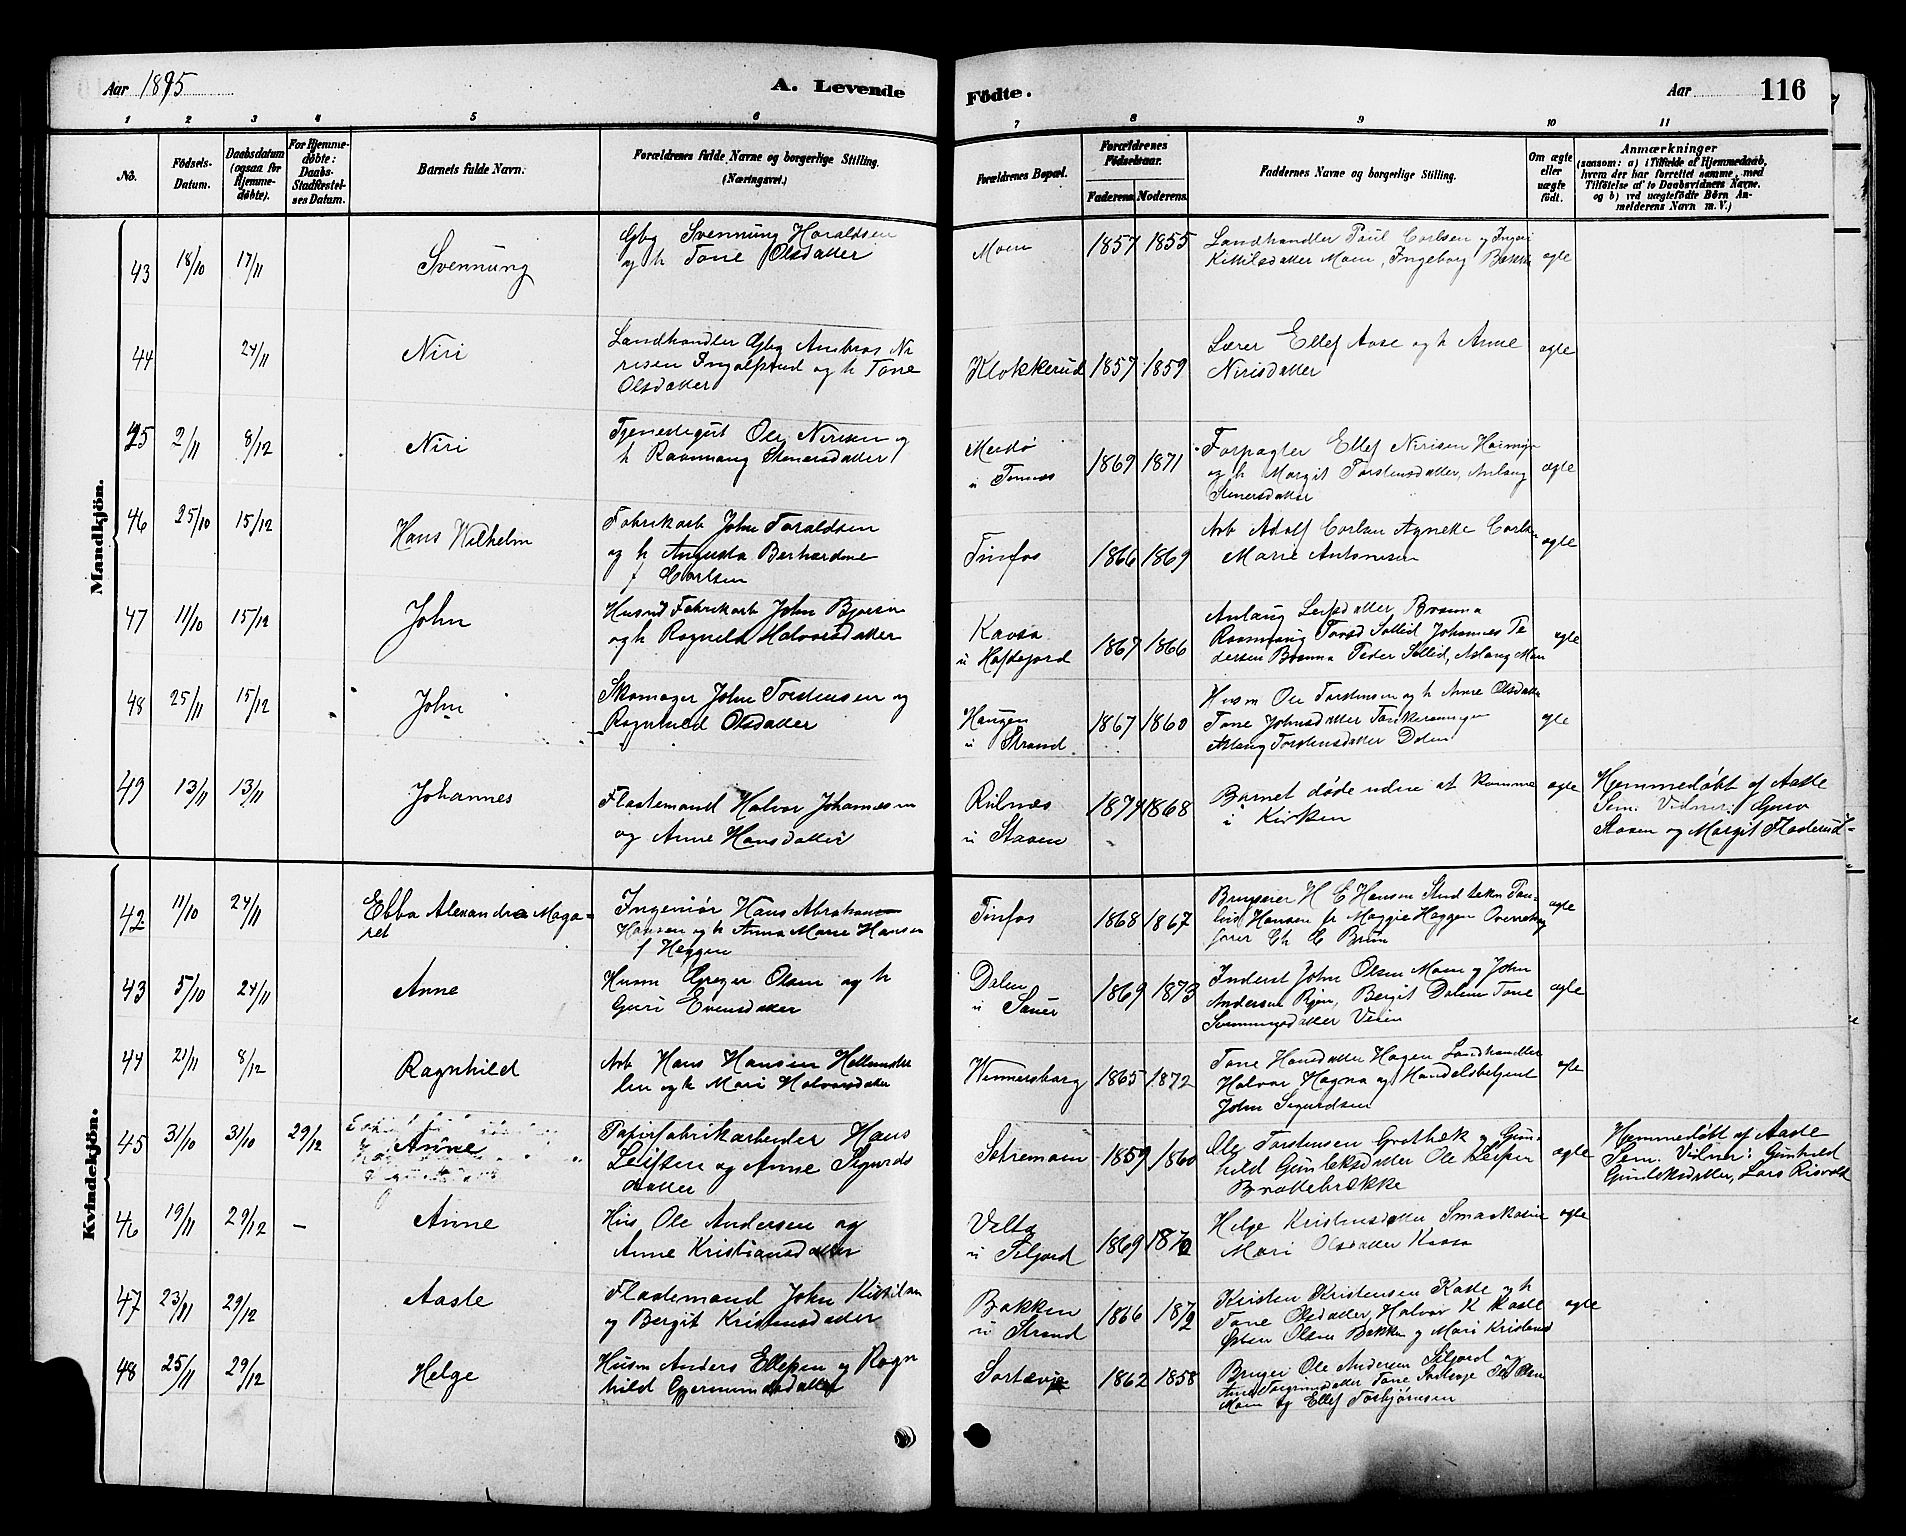 Aar 1895
A. Levende
Födte.
Aar
116
1 2 3 4 5 6 7 8 9 10 11
No.
Födsels-
Datum.
Daabsdatum
(ogsaa for
Hjemme-
døbte).
For Hjemme-
døbte:
Daabs-
Stadfæstel-
ses Datum.
Barnets fulde Navn.
Forældrenes fulde Navne og borgerlige Stilling.
(Næringsvei.)
Forældrenes Bopæl.
Forældrenes
Födselsaar.
Faderens. Moderens.
Faddernes Navne og borgerlige Stilling.
Om ægte
eller
uægte
født.
Anmærkninger
(saasom: a) i Tilfælde af Hjemmedaab,
hvem der har forrettet samme, med
Tilföielse af to Daabsvidners Navne,
og b) ved uægtefödte Börn An-
melderens Navn m. V.)
Mandkjön.
43 18/10 17/11 Svennung
Gbg Svennung Haraldsen
og h Tone Olsdatter
Moen 1857 1855
Landhandler Paul Carlsen og Ingeri
Kittilsdatter Moen, Ingeborg Bakke
ægte
44 24/11 Niri
Landhandler Gbg Andreas Ni
risen Ingolfsland og h Tone
Olsdatter
Klokkerud 1857 1859
Lærer Ellef Aase og h Anne
Nirisdatter
ægte
45 2/11 8/12 Niri
Tjenestegut Ole Nirisen og
h Raamaug Stenersdatter
u Tinnes 1869 1871
Forpagter Ellef Nirisen
og h Margit Torstensdatter, Aslaug
Stenersdatter
ægte
46 25/10 15/12 Hans Wilhelm
Fabrikarb John Taraldsen
og h Augusta Berhardine
f Carlsen
Tinfos 1866 1869
Arb Adolf Carlsen Agnethe Carlsen
Marie Antonisen
ægte
47 11/10 15/12 John
Husm Fabrikarb John Bjørsen
og h Ragnild Halvorsdatter
Kaasa
u Haftegord 1867 1866
Aslaug Leifsdatter
Raamaug Sollid Johannes Pe
dersen Peder Sollid, Aslaug Moen
ægte
48 25/11 15/12 John
Skomager John Torstensen og
Ragnhild Olsdatter
Haugen
u Strand 1867 1860
Husm Ole Torstensen og h Anne Olsdatter
Tone Johnsdatter
Aslaug Torstensdatter Dalen
ægte
49 13/11 13/11 Johannes
Flødemand Halvor Johannesen
og Anne Hansdatter
Rülnæs
u Staaen 1874 1868
Barnet døde uden at komme
i Kirken
ægte
Hjemmedøbt af Aaste
Sem. Vidner: Guro
Staaen og Margit Fladerud
Kvindekjön.
42 11/10 24/11 Ebba Alexandra Maga-
ret
Ingeniør Hans Abraham
Hansen og h Anna Marie Hansen
f Heggen
Tinfos 1868 1867
Brugseier H C Hansen Stud tekn
Hansen fr Maggie Heggen
fører Ch C Bruun
ægte
43 5/10 24/11 Anne
Husm Greger Olsen og h
Guri Evensdatter
Dalen
u Sauer 1869 1873
Inderst John Olsen Moen og John
Andersen Rjen, Bergit Dalen Tone
Svennungsdatter
ægte
44 21/11 8/12 Ragnhild
Arb Hans Hansen
og h Mari Halvorsdatter
Wennersborg 1865 1872
Tone Hansdatter Hagen Landhandler
Halvor Hagna og Handelsbetjent
John Sigurdsen
ægte
45 31/10 31/10 29/12 Anne
Papirfabrikarbeider Hans
Leifsen og Anne Sigurds
datter
Sætremoen 1859 1860
Ole Torstensen Grotbæk og Gun-
hild Gunleksdatter Ole Leifsen
Brattebrække
ægte
Hjemmedøbt af Aaste
Sem. Vidner: Gunhild
Gunleksdatter, Lars Risvold
46 19/11 29/12 – Anne
Hus Ole Andersen og
Anne Kristiansdatter
Velta
u Siljord 1869
Helge Kristensdatter
Mari Olsdatter Kaasa
ægte
47 23/11 29/12 Aaste
Flødemand John Kittilsen
og Bergit Kristensdatter
Bakken
u Strand 1866 1872
Kristen Kristensen Kaste og h
Tone Olsdatter, Halvor K Kaste
Østen Olsen Bakken og Mari Kristens
ægte
48 25/11 29/12 Helge
Husm Anders Ellefsen og Ragn
hild Gjermundsdatter
Sortevje 1862 1858
Bruger Ole Andersen Siljord og
Tone Sortevje Ole Olsen
Moen og Ellef Torbjørnsen